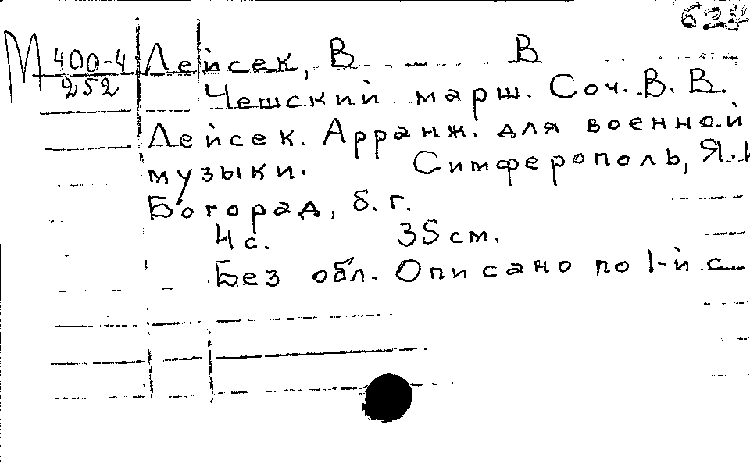 М 400-4
252
Лейсек, В В
Чешский марш. Соч. В. В.
Лейсек. Арранж. для военной
музыки. Симферополь, Я.
Богорад, б. г.
4 с. 35 см.
Без обл. Описано по 1-й с